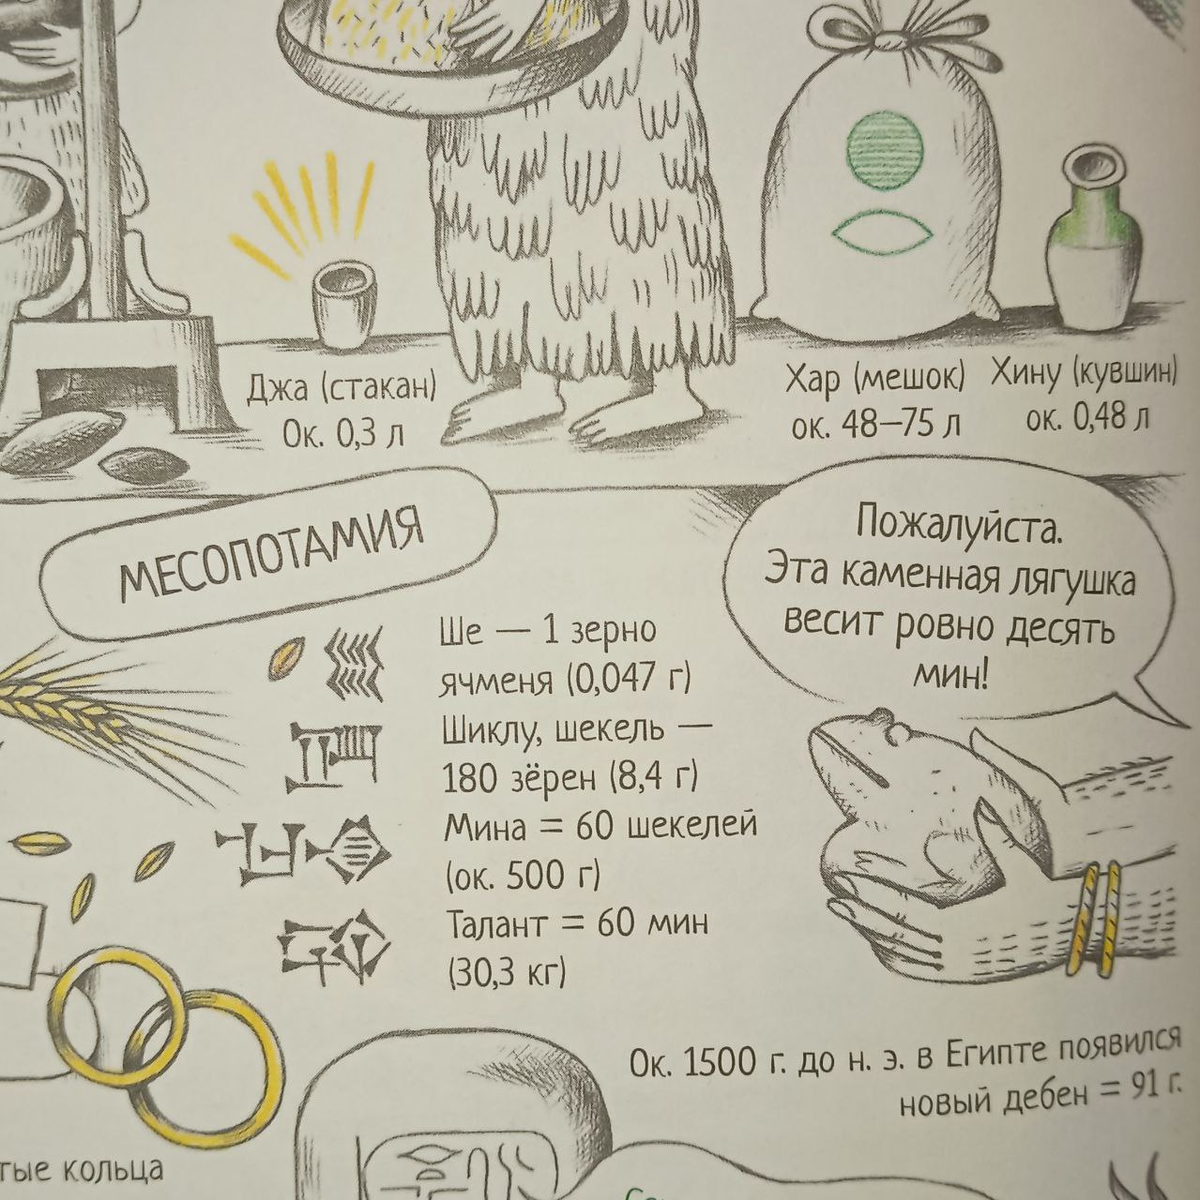 Джа (стакан)
Ок. 0,3 л
Хар (мешок)
ок. 48–75 л
Хину (кувшин)
ок. 0,48 л
МЕСОПОТАМИЯ
Пожалуйста.
Эта каменная лягушка
весит ровно десять
мин!
Ше — 1 зерно
ячменя (0,047 г)
Шиклу, шекель —
180 зёрен (8,4 г)
Мина = 60 шекелей
(ок. 500 г)
Талант = 60 мин
(30,3 кг)
Ок. 1500 г. до н. э. в Египте появился
новый дебен = 91 г.
кольца